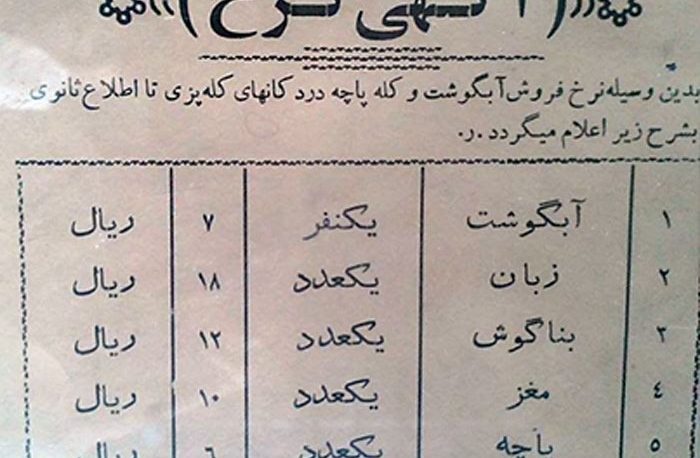 ((آگهی نرخ))
بدین وسیله نرخ فروش آبگوشت و کله پاچه در دکانهای کله پزی تا اطلاع ثانوی
بشرح زیر اعلام میگردد .ر.
۱ آبگوشت یکنفر ۷ ریال
۲ زبان یکعدد ۱۸ ریال
۳ بناگوش یکعدد ۱۲ ریال
۴ مغز یکعدد ۱۰ ریال
۵ پاچه یکعدد ۶ ریال